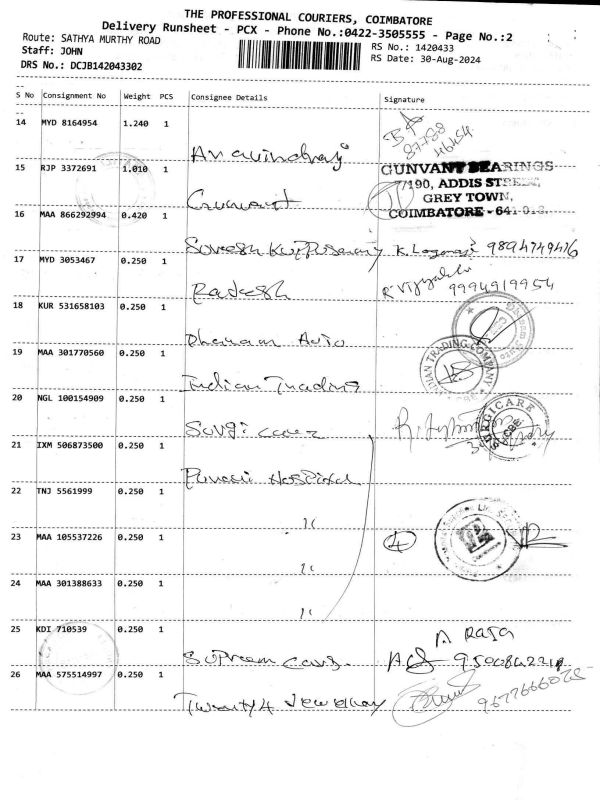 THE PROFESSIONAL COURIERS, COIMBATORE
Delivery Runsheet - PCX - Phone No.:0422-3505555 - Page No.:2
Route: SATHYA MURTHY ROAD
RS No.: 1420433
Staff: JOHN
RS Date: 30-Aug-2024
DRS No.: DCJB142043302
S No Consignment No Weight PCS Consignee Details Signature
14 MYD 8164954 1.240 1
87788
46454
15 RJP 3372691 1.010 1
GUNVANT BEARINGS
7/190, ADDIS STREET,
GREY TOWN,
COIMBATORE - 641 018.
Gunvant
16 MAA 866292994 0.420 1
17 MYD 3053467 0.250 1
Rajesh
9994919954
18 KUR 531658103 0.250 1
Dhanam Auto
19 MAA 301770560 0.250 1
INDIAN TRADING COMPANY
Indian Trading
20 NGL 100154909 0.250 1
SURGICARE
CBE
Surgi care
21 IXM 506873500 0.250 1
Hospital
22 TNJ 5561999 0.250 1
"
23 MAA 105537226 0.250 1
4
"
24 MAA 301388633 0.250 1
"
25 KDI 710539 0.250 1
A RAJA
26 MAA 575514997 0.250 1
Twenty4 Jewellary